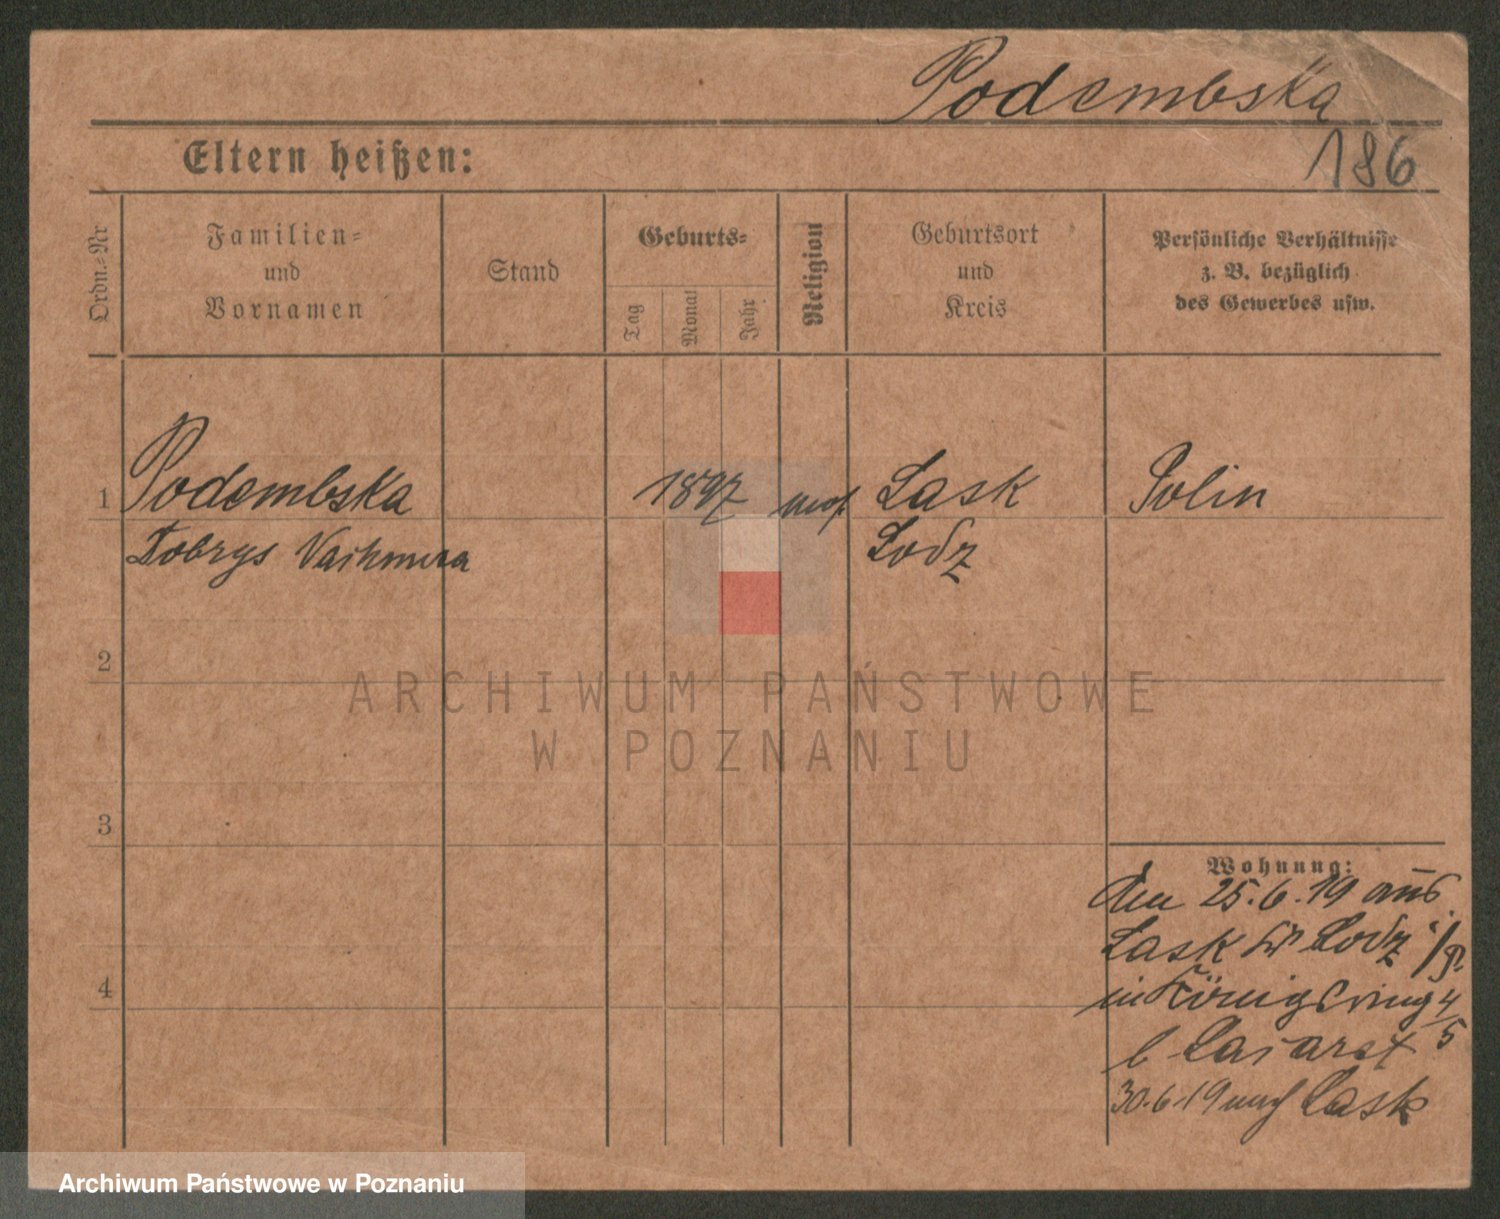 Podembska
Eltern heißen:
186
Ordn.-Nr
Familien-
und
Vornamen
Stand
Geburts-
Tag
Monat
Jahr
Religion
Geburtsort
und
Kreis
Persönliche Verhältnisse
z. B. bezüglich
des Gewerbes usw.
1
Podembska
1897
mos.
Lask
Polin
Dobrys
Lodz
2
ARCHIWUM PAŃSTWOWE
W POZNANIU
3
Wohnung:
den 25.6.19 aus
Lask Lodz
4
in Königsring 4/5
b
30.6.19 nach Lask
Archiwum Państwowe w Poznaniu